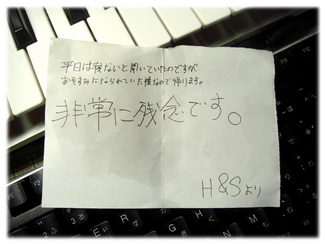 平日は寝ないと聞いていたのですが
おやすみになられていた様なので帰ります。
非常に残念です。
H&Sより